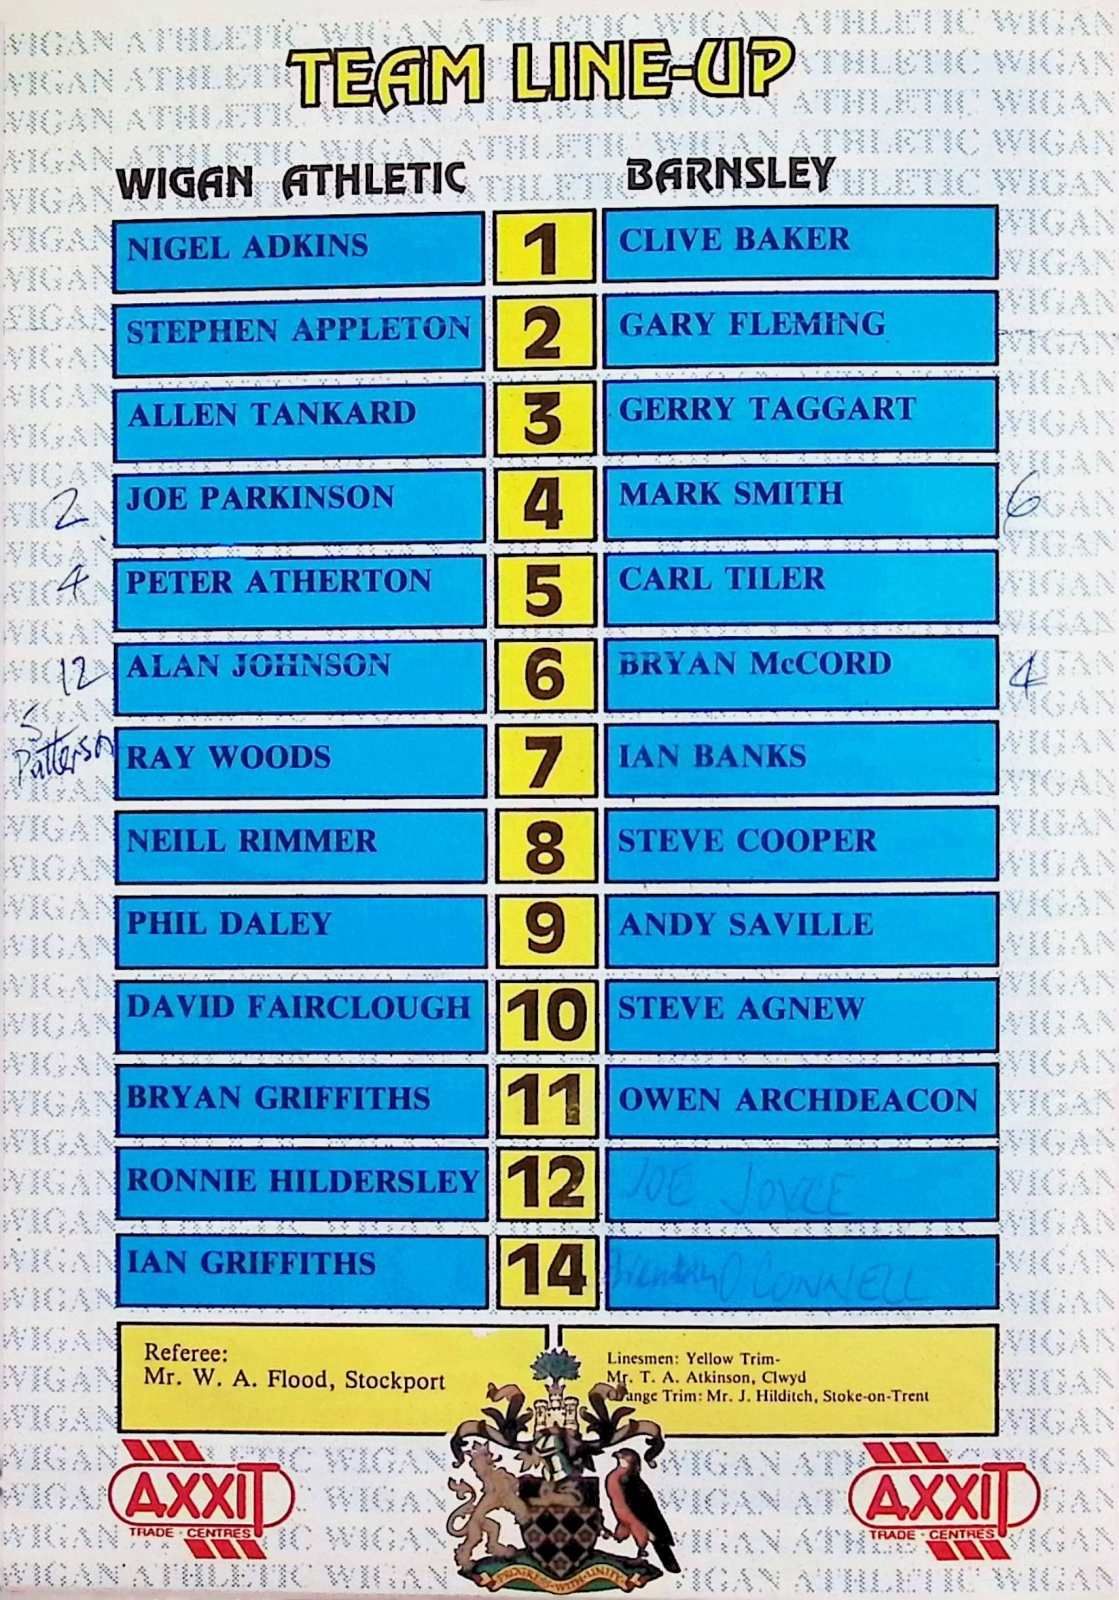 TEAM LINE-UP
WIGAN ATHLETIC BARNSLEY
NIGEL ADKINS 1 CLIVE BAKER
STEPHEN APPLETON 2 GARY FLEMING
ALLEN TANKARD 3 GERRY TAGGART
2 JOE PARKINSON 4 MARK SMITH 6
4 PETER ATHERTON 5 CARL TILER
12 ALAN JOHNSON 6 BRYAN McCORD 4
5
Patterson RAY WOODS 7 IAN BANKS
NEILL RIMMER 8 STEVE COOPER
PHIL DALEY 9 ANDY SAVILLE
DAVID FAIRCLOUGH 10 STEVE AGNEW
BRYAN GRIFFITHS 11 OWEN ARCHDEACON
RONNIE HILDERSLEY 12 JOE JOYCE
IAN GRIFFITHS 14 O'CONNELL
Referee:
Mr. W. A. Flood, Stockport
Linesmen: Yellow Trim-
Mr. T. A. Atkinson, Clwyd
Orange Trim: Mr. J. Hilditch, Stoke-on-Trent
AXXIT
TRADE · CENTRES
PROGRESS WITH UNITY
AXXIT
TRADE · CENTRES
WIGAN ATHLETIC WIGAN ATHLETIC WIGAN ATHLETIC WIGAN